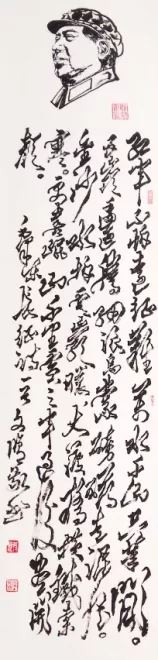 红军不怕远征难万水千山只等闲。
五岭逶迤腾细浪乌蒙磅礴走泥丸。
金沙水拍云崖暖大渡桥横铁索
寒。更喜岷山千里雪三军过后尽开
颜。
毛主席长征诗一首